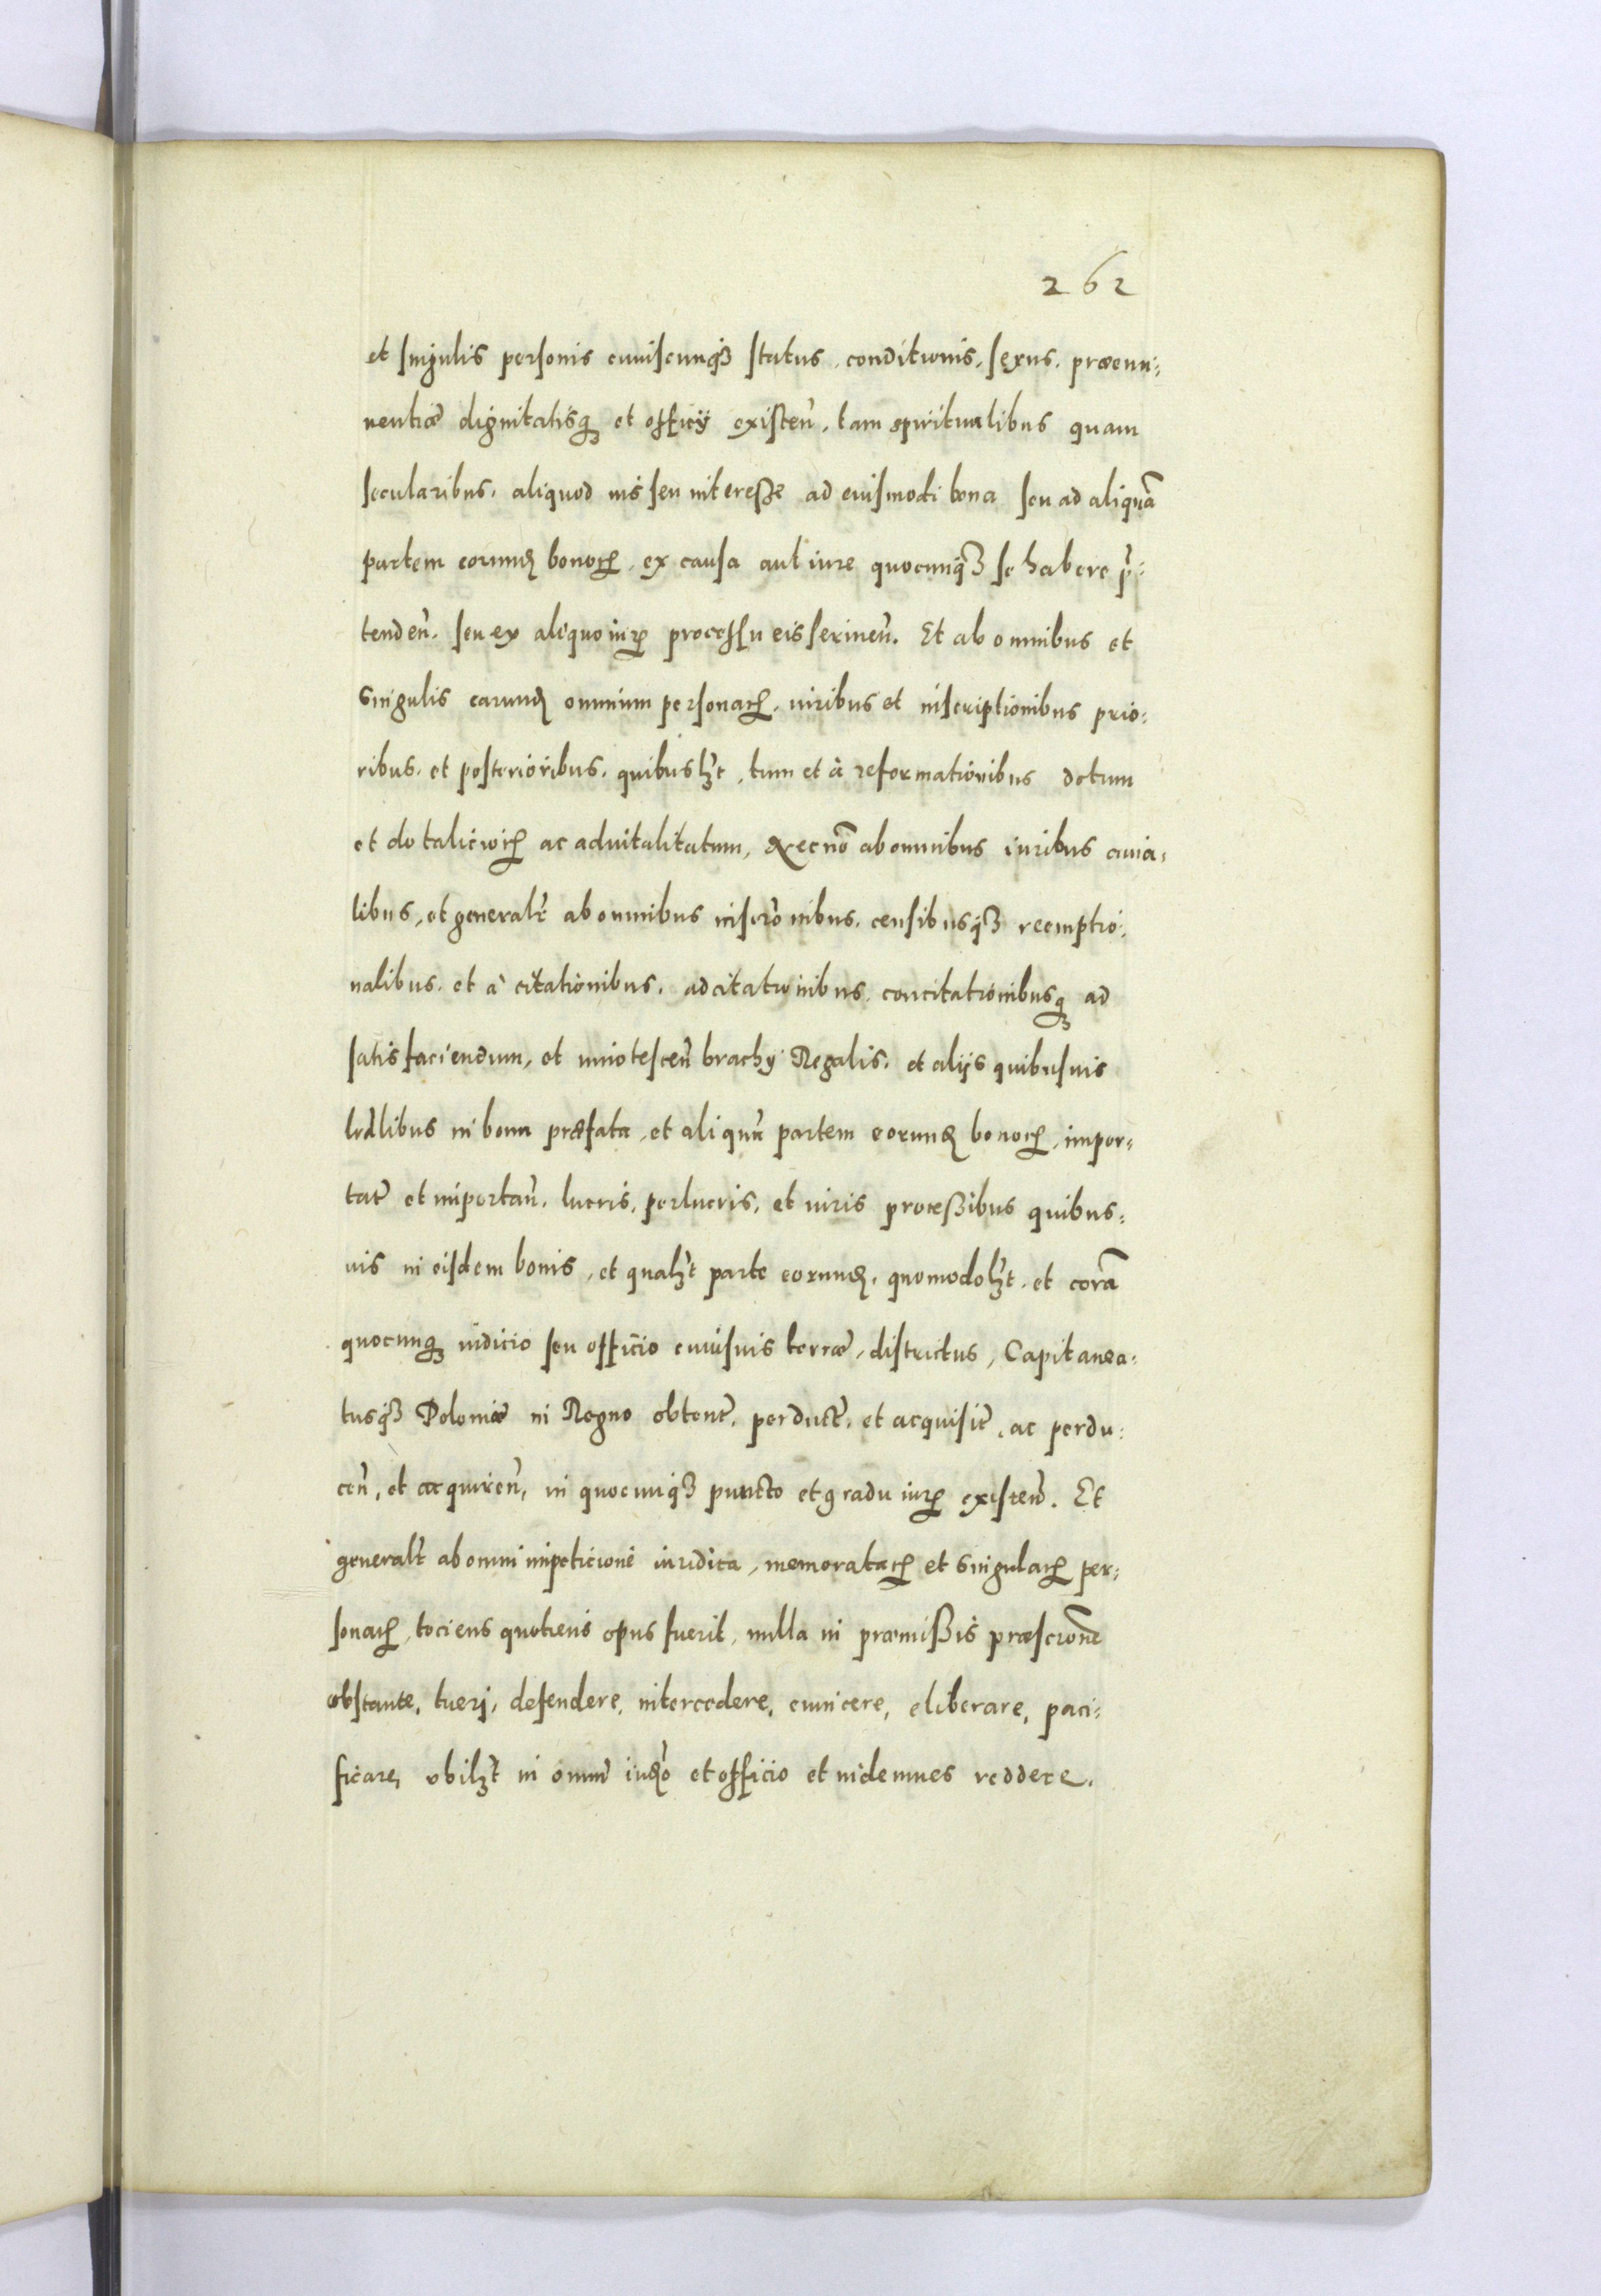 262
et singulis personis cuiuscunqȝ status, conditionis, sexus, præemi:
nentiæ dignitatisqȝ et officij existeñ, tam spiritualibus quam
secularibus, aliquod ius seu interesse ad euismodi bona seu ad aliquã
partem eorundꝫ bonorꝝ, ex causa aut iure quocunqȝ se habere p̃:
tendeñ. seu ex aliquo iurꝝ processu eis seruieñ. Et ab omnibus et
singulis earundꝫ omnium personarꝝ, iuribus et inscriptionibus prio:
ribus, et posterioribus, quibuslȝt, tum et à reformationibus dotum
et dotaliciorꝝ ac aduitalitatum, Necnõ ab omnibus iuribus auia:
libus, et generalr̃ ab omnibus inscrõnibus, censibusqȝ reemptio:
nalibus, et à citationibus, adcitationibus, concitationibusqȝ ad
satisfaciendum, et innotesceñ brachij Regalis, et alijs quibusuis
lrãlibus in bona præfata, et aliquã partem eorundꝫ bonorꝝ, impor:
tat̃ et importañ, lucris, perlucris, et iuris processibus quibus:
uis in eisdem bonis, et qualȝt parte eorundꝫ, quomodolȝt, et corã
quocunqȝ iudicio seu officio cuiusuis terræ, districtus, Capitanea:
tusqȝ Poloniæ in Regno obtent̃, perduct̃, et acquisit̃, ac perdu:
ceñ, et acquireñ, in quocunqȝ puncto et gradu iurꝝ existeñ. Et
generalr̃ ab omni impeticione iuridica, memoratarꝝ et singularꝝ per:
sonarꝝ, tociens quotiens opus fuerit, nulla in præmissis præscrõne
obstante, tueri, defendere, intercedere, euincere, eliberare, paci:
ficare, ubilȝt in omni iudꝫo et officio et indemnes reddere.